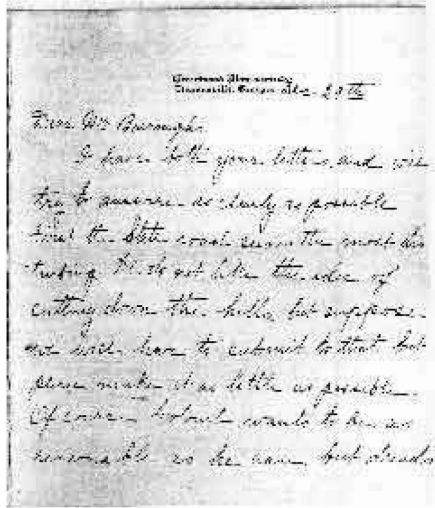 Greenwood Plantation,
Thomasville, Georgia. Dec 29th
Dear Mr Burroughs
I have both your letters and will
try to answer as clearly as possible
First the State road seems the most dis
turbing We do not like the idea of
cutting down the hills, but suppose
we will have to submit to that but
please make it as little as possible.
Of course wants to be as
reasonable as he can, but dreads